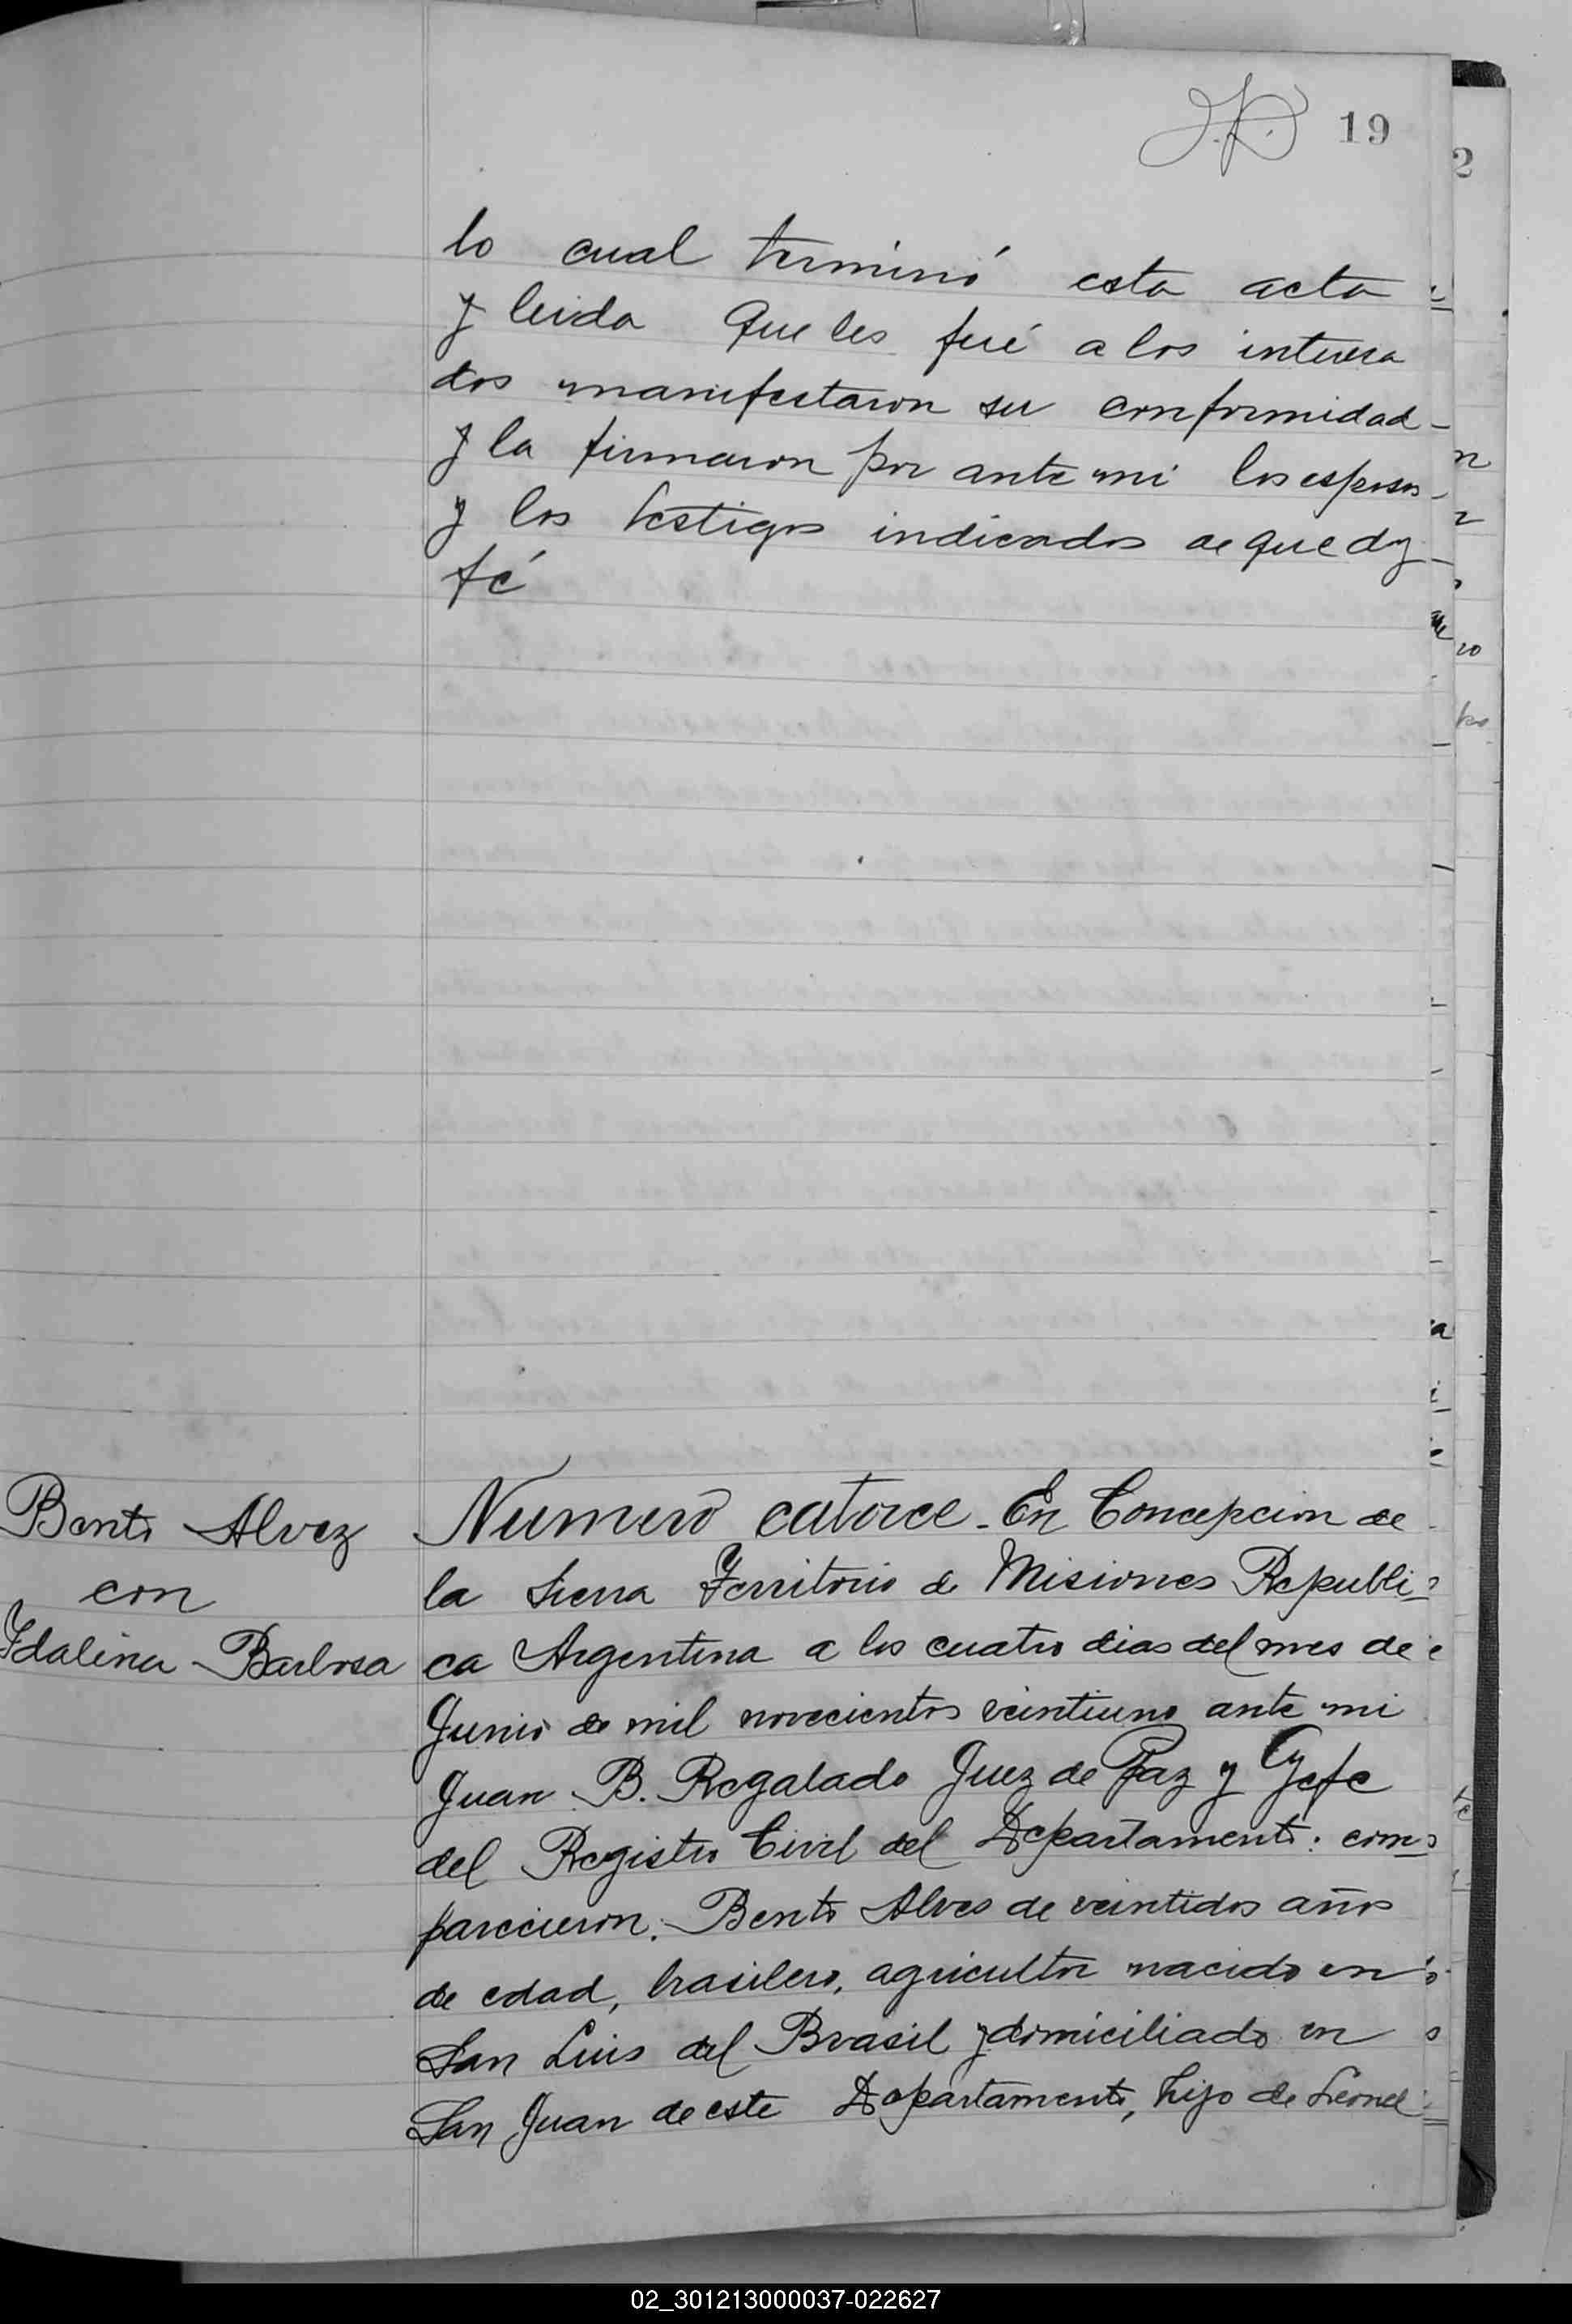 19
lo cual terminó esta acta
y leida que les fué a los interesa
dos manifestaron su conformidad
y la firmaron por ante mi los esposos
y los testigos indicados de que doy
fé
Bento Alvez
con
Idalina Barbosa
Numero catorce - En Concepcion de
la Sierra Territorio de Misiones Republi-
ca Argentina a los cuatro dias del mes de
Junio de mil novecientos veintiuno ante mi
Juan B. Regalado Juez de Paz y Gefe
del Registro Civil del Departamento: com-
parecieron: Bento Alves de veintidos años
de edad, brasilero, agricultor nacido en
San Luis del Brasil y domiciliado en
San Juan de este Departamento, hijo de Leonel
02_301213000037-022627